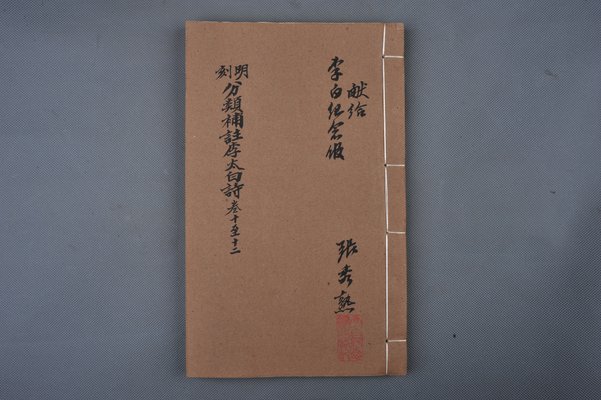 献给
李白纪念馆
张秀熟
明刻
分類補註李太白詩卷十至十二